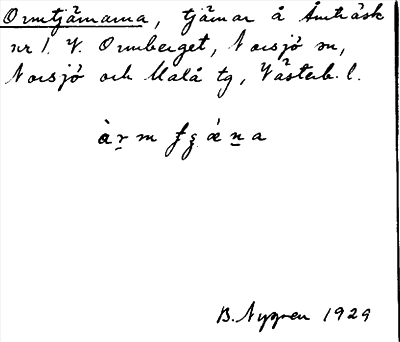 Ormtjärnarna, tjärnar å Åmträsk
nr 1. V. Ormberget, Norsjö sn,
Norsjö och Malå tg, Västerb. l.
B. Nygren 1929